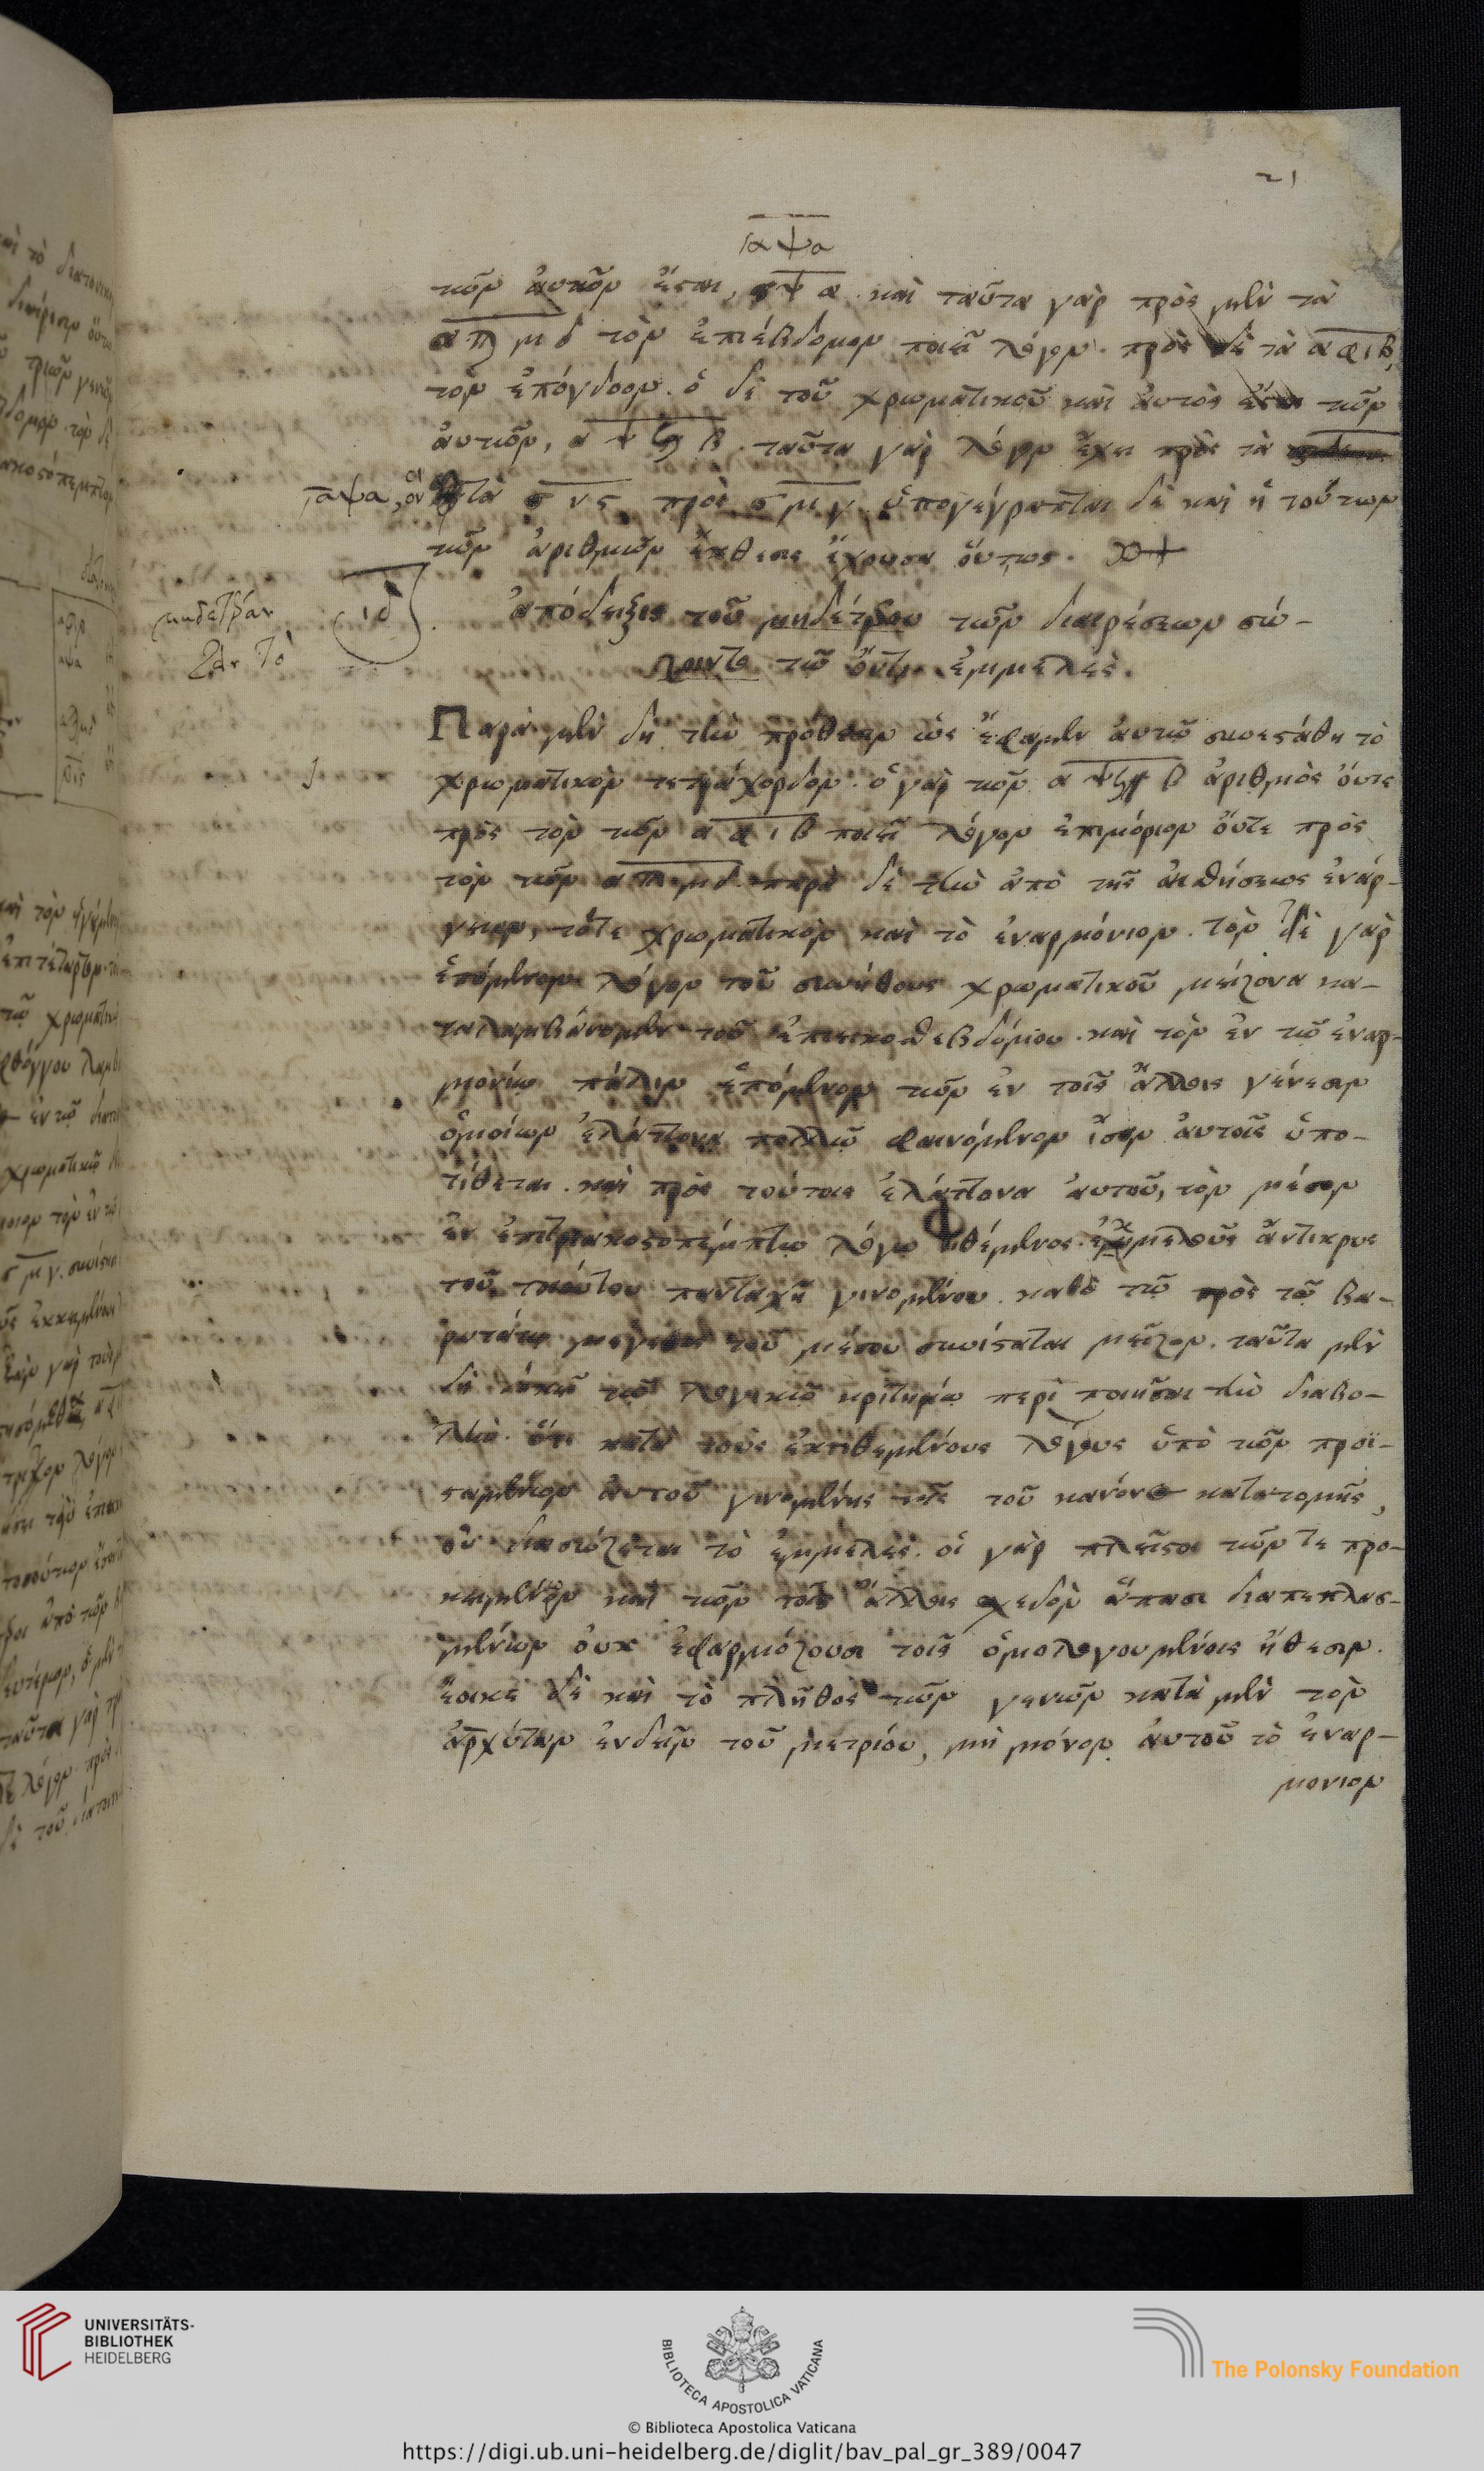 21
͵αψα
τῶν αὐτῶν ἔσται, ͵αψα. καὶ ταῦτα γὰρ πρὸς μὲν τὰ
͵αϡμδ τὸν ἐπιέβδομον ποιεῖ λόγον. πρὸς δὲ τὰ ͵αφιβ,
τὸν ἐπόγδοον. ὁ δὲ τοῦ χρωματικοῦ καὶ αὐτὸς ἔσται τῶν
αὐτῶν, ͵αψϟβ. ταῦτα γὰρ λόγον ἔχει πρὸς τὰ
͵αψα, ὃν τὰ σνς πρὸς σμγ. ὑπογέγραπται δὲ καὶ ἡ τούτων
τῶν ἀριθμῶν ἔκθεσις ἔχουσα οὕτως.
ιδ
ἀπόδειξις τοῦ μηδετέρου τῶν διαιρέσεων σώ-
ζοντος τῷ ὄντι ἐμμελές.
Παρὰ μὲν δὴ τὴν πρόθεσιν ὡς ἔφαμεν αὐτῷ συνεστάθη τὸ
χρωματικὸν τετράχορδον. ὁ γὰρ τῶν ͵αψϟβ ἀριθμὸς οὔτε
πρὸς τὸν τῶν ͵αφιβ ποιεῖ λόγον ἐπιμόριον οὔτε πρὸς
τὸν τῶν ͵αϡμδ. παρὰ δὲ τὴν ἀπὸ τῆς αἰσθήσεως ἐνάρ-
γειαν, τότε χρωματικὸν καὶ τὸ ἐναρμόνιον. τὸν δὲ γὰρ
ἑπόμενον λόγον τοῦ συνήθους χρωματικοῦ μείζονα κα-
ταλαμβάνομεν τοῦ ἐπιεικοσθεβδόμου. καὶ τὸν ἐν τῷ ἐναρ-
μονίῳ πάλιν ἑπόμενον τῶν ἐν τοῖς ἄλλοις γένεσιν
ὁμοίων ἐλάττονα πολλῷ φαινόμενον ἴσον αὐτοῖς ὑπο-
τίθεται. καὶ πρὸς τούτοις ἐλάττονα αὐτοῦ, τὸν μέσον
ἐν ἐπιτριακοστοπέμπτῳ λόγῳ τιθέμενος. ἐκμελοῦς ἄντικρυς
τοῦ τοιούτου πανταχῆ γινομένου. καθὸ τῷ πρὸς τῷ βα-
ρυτάτῳ μέγεθος τοῦ μέσου συνίσταται μεῖζον. ταῦτα μὲν
δὴ δοκεῖ τῷ λογικῷ κριτηρίῳ περιποιῆσαι τὴν διαβο-
λήν. ὅτι κατὰ τοὺς ἐκτιθεμένους λόγους ὑπὸ τῶν προϊ-
σταμένων αὐτοῦ γινομένης τῆς τοῦ κανόνος κατατομῆς,
οὐ διασῴζεται τὸ ἐμμελές. οἱ γὰρ πλεῖστοι τῶν τε προ-
κειμένων καὶ τῶν τοῖς ἄλλοις σχεδὸν ἅπασι διαπεπλασ-
μένων οὐκ ἐφαρμόζουσι τοῖς ὁμολογουμένοις ἤθεσιν.
ἔοικε δὲ καὶ τὸ πλῆθος τῶν γενῶν κατὰ μὲν τὸν
ἀρχύταν ἐνδεῖν τοῦ μετρίου, μὴ μόνον αὐτοῦ τὸ ἐναρ-
μονιον
UNIVERSITÄTS-
BIBLIOTHEK
HEIDELBERG
BIBLIOTECA APOSTOLICA VATICANA
The Polonsky Foundation
© Biblioteca Apostolica Vaticana
https://digi.ub.uni-heidelberg.de/diglit/bav_pal_gr_389/0047